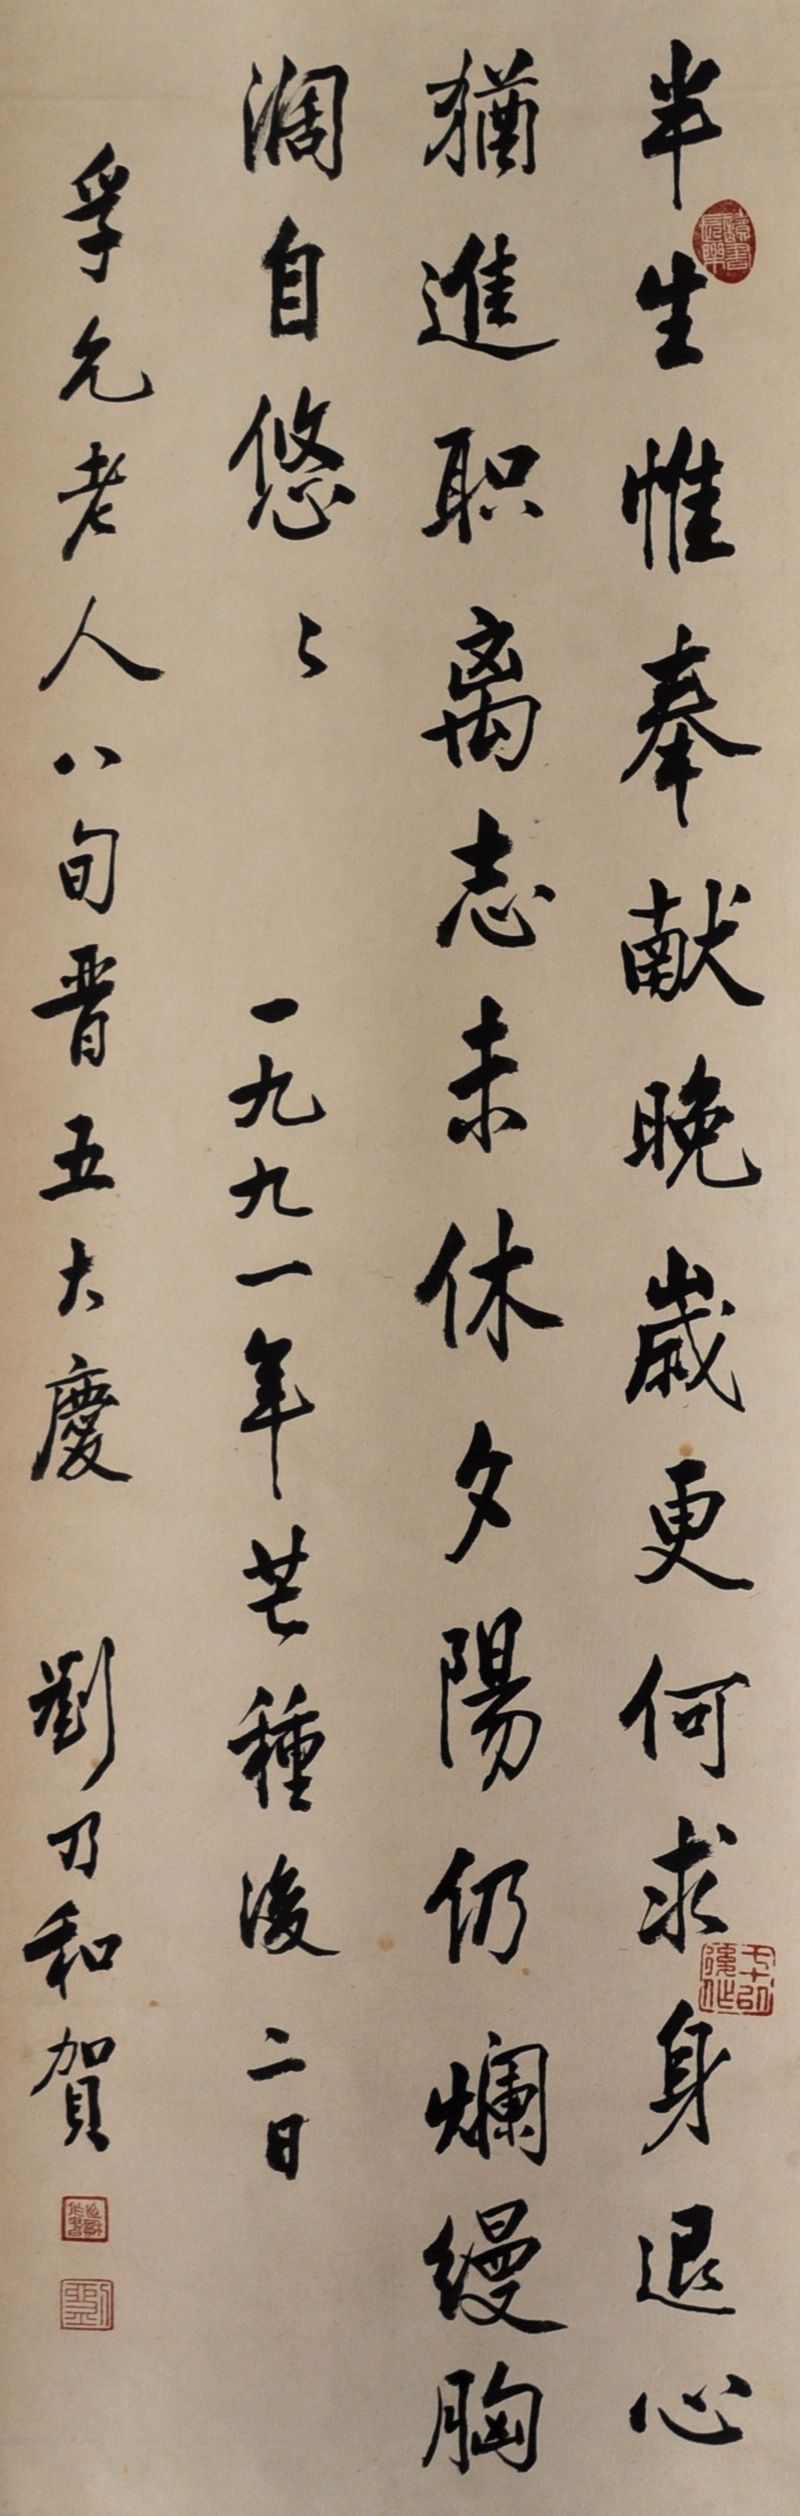 半生惟奉献晚歲更何求身退心
猶進职离志未休夕陽仍爛缦胸
濶自悠〻 一九九一年芒種後二日
孚允老人八旬晋五大慶 劉乃和賀